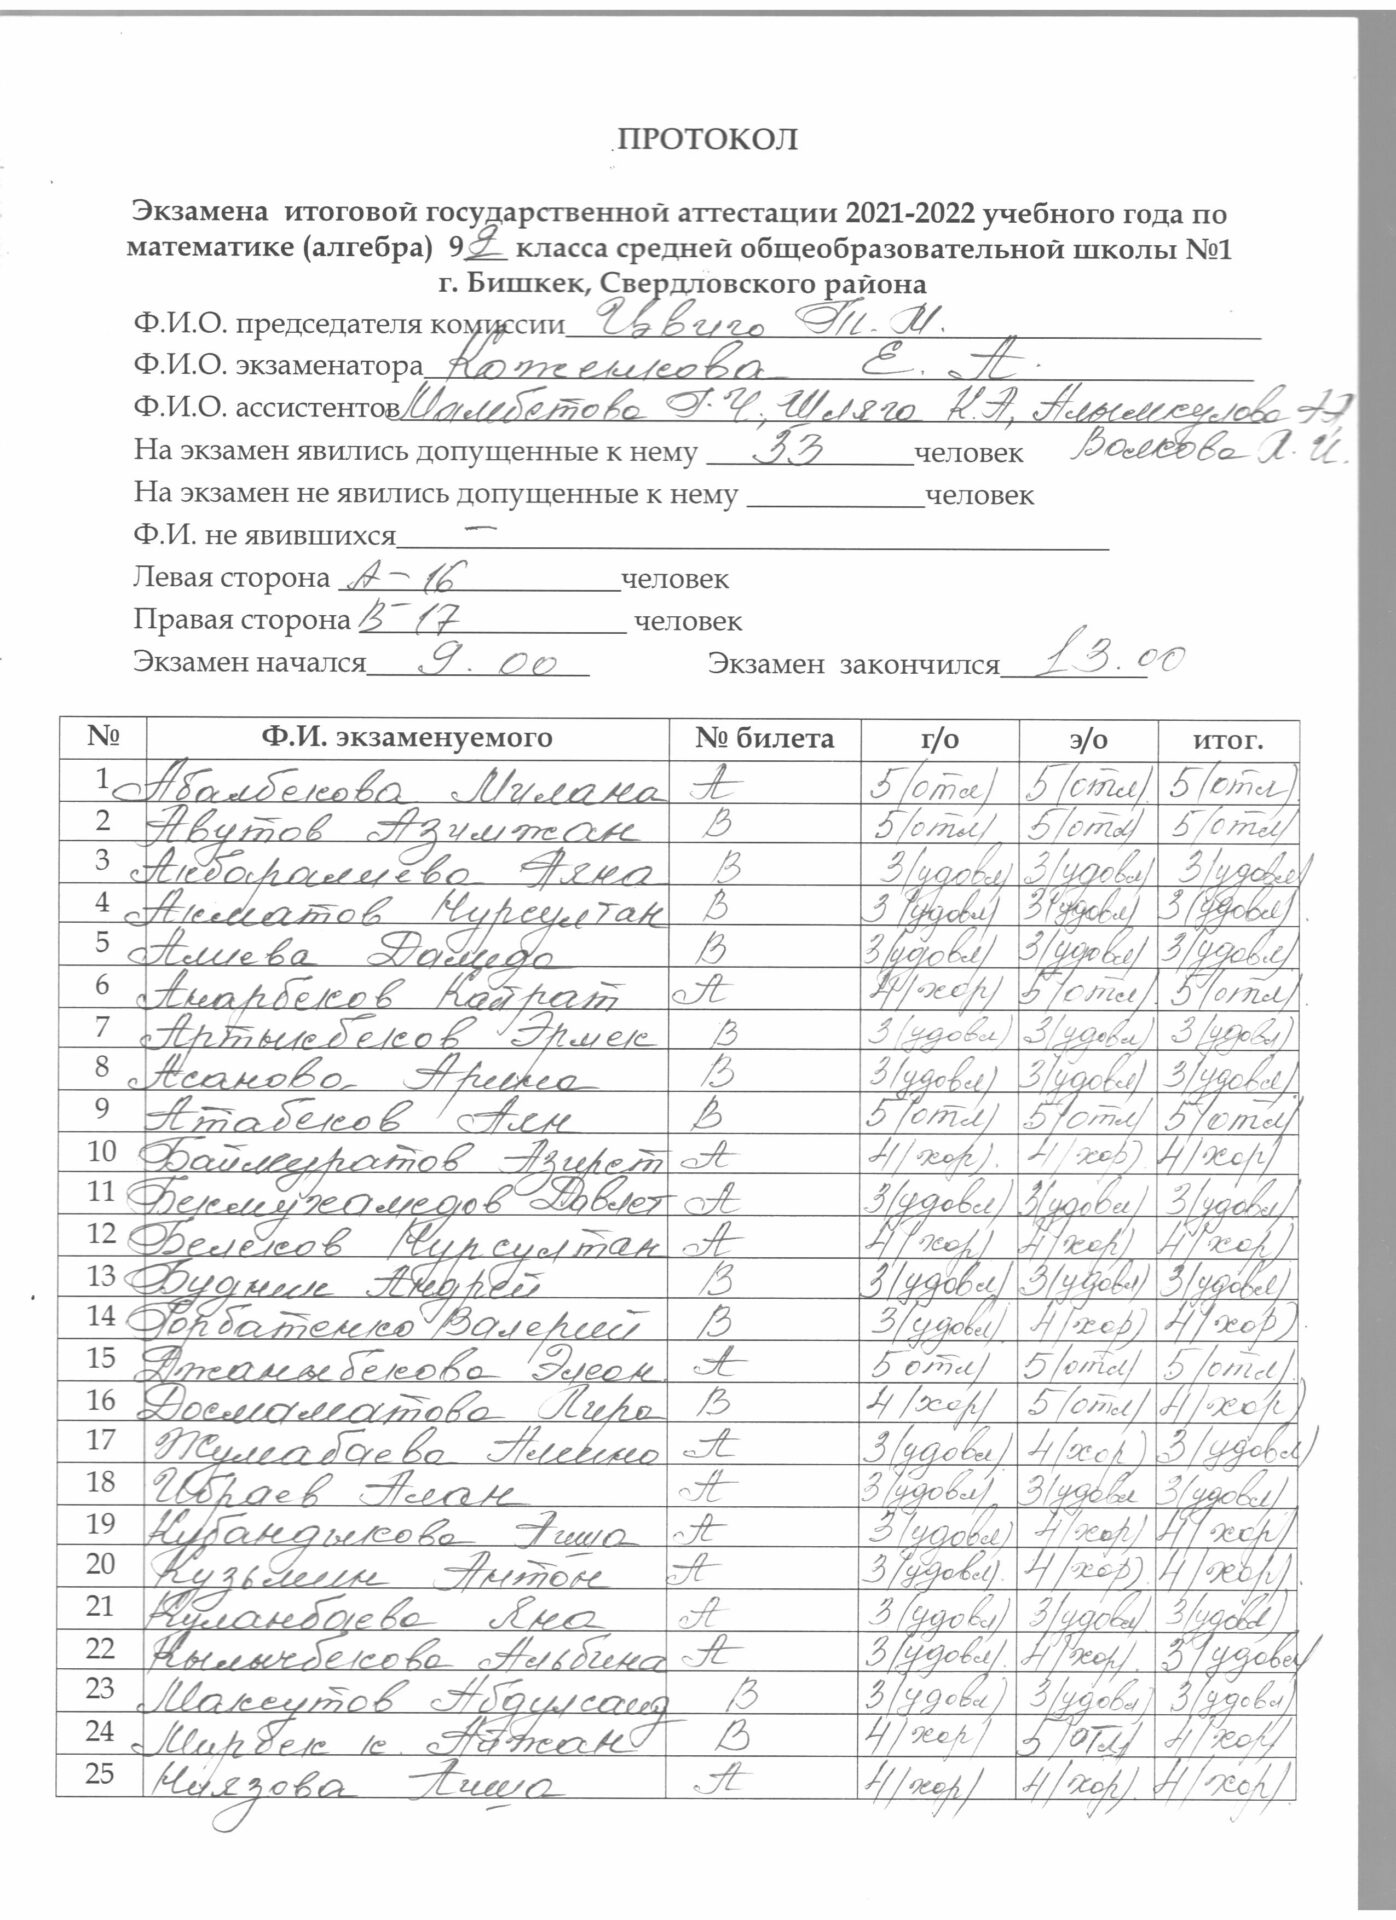 ПРОТОКОЛ
Экзамена итоговой государственной аттестации 2021-2022 учебного года по
математике (алгебра) 9 класса средней общеобразовательной школы №1
г. Бишкек, Свердловского района
Ф.И.О. председателя комиссии Цвиго Т. М.
Ф.И.О. экзаменатора Коженкова Е. А.
Ф.И.О. ассистентов Мамбетова Г.Ч., Шляго К.А, Алымкулова
На экзамен явились допущенные к нему 33 человек Волкова Л. И.
На экзамен не явились допущенные к нему человек
Ф.И. не явившихся —
Левая сторона А – 16 человек
Правая сторона В – 17 человек
Экзамен начался 9.00 Экзамен закончился 13.00
№ Ф.И. экзаменуемого № билета г/о э/о итог.
1 Абалбекова Милана А 5 (отл) 5 (отл). 5 (отл)
2 Авутов Азимжан В 5(отл) 5(отл) 5(отл)
3 Акбаралиева Аяна В 3(удовл) 3(удовл) 3(удовл)
4 Акматов Нурсултан В 3(удовл) 3(удовл) 3(удовл).
5 Алиева В 3(удовл) 3(удовл) 3(удовл).
6 Анарбеков Кайрат А 4(хор) 5(отл). 5(отл)
7 Артыкбеков Эрмек В 3(удовл) 3(удовл) 3(удовл)
8 Асанова Арина В 3(удовл) 3(удовл) 3(удовл).
9 Атабеков Аян В 5(отл) 5(отл) 5(отл)
10 Баймуратов Азирет А 4(хор). 4(хор) 4(хор)
11 Бекмухамедов Давлет А 3(удовл) 3(удовл) 3(удовл).
12 Белеков Нурсултан А 4(хор) 4(хор) 4(хор)
13 Будник Андрей В 3(удовл) 3(удовл) 3(удовл)
14 Горбатенко Валерий В 3(удовл). 4(хор) 4(хор)
15 Джаныбекова А 5 отл) 5(отл) 5(отл).
16 Досмаматова Лира В 4(хор) 5(отл) 4(хор)
17 Жумабаева Амина А 3(удовл) 4(хор) 3(удовл)
18 Ибраев Алан А 3(удовл) 3(удовл 3(удовл)
19 Кубандыкова Аиша А 3(удовл) 4(хор) 4(хор)
20 Кузьмин Антон А 3(удовл). 4(хор). 4(хор).
21 Куланбаева Яна А 3(удовл) 3(удовл). 3(удовл)
22 Кылычбекова Альбина А 3(удовл). 4(хор). 3(удовл)
23 Максутов Абдулсаид В 3(удовл) 3(удовл) 3(удовл)
24 Мирбек к. Айжан В 4(хор) 5(отл) 4(хор)
25 Ниязова Аиша А 4(хор) 4(хор). 4(хор)